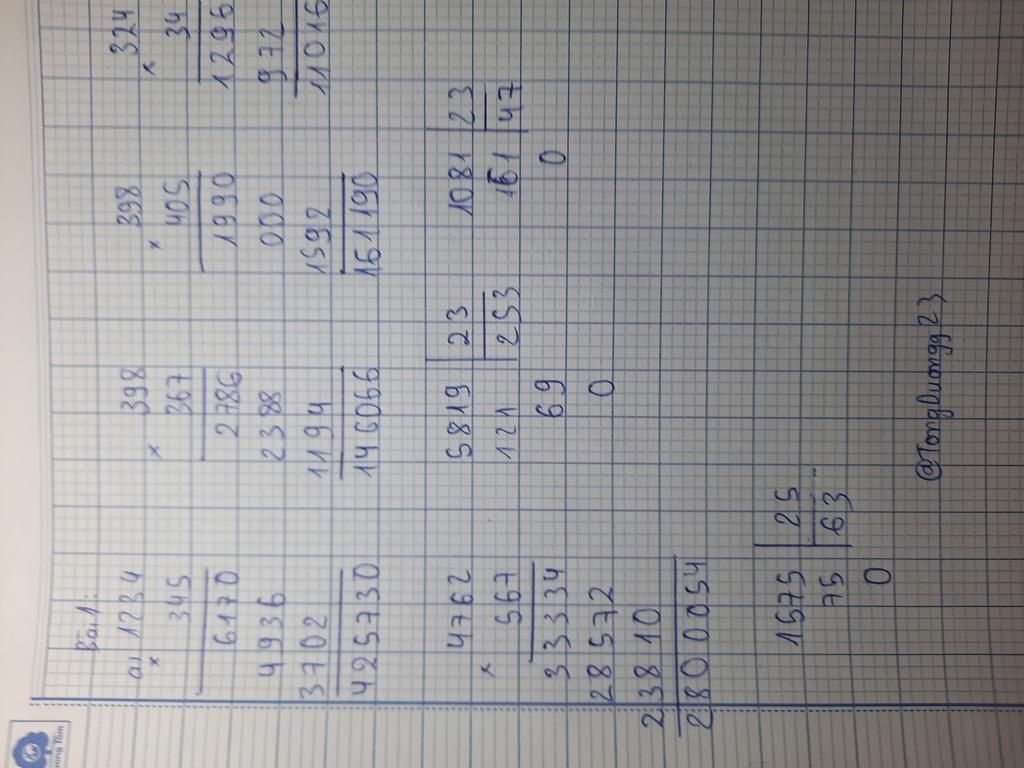 Bài 1:
a) 1234
×
345
6170
4936
3702
425730
× 398
367
2786
2388
1194
146066
× 398
405
1990
000
1592
161190
× 324
34
1296
972
11016
4762
×
567
33334
28572
23810
2800054
5819 23
121 253
69
0
1081 23
161 47
0
1575 25
75 63
0
@Tongduongg23